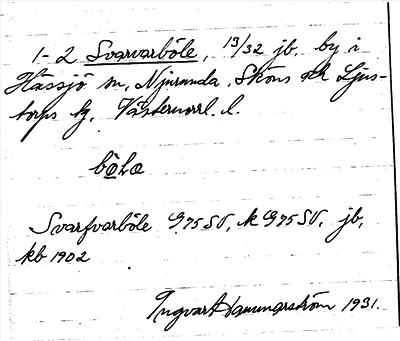 1-2 Svarvarböle, 13/32 jb. by i
Hässjö sn, Njurunda, Sköns och Ljus-
torps tg, Västernorrl. l.
bòlæ
Svarfvarböle G75 SV, k G975 SV, jb,
kb 1902
Ingvar Hammarström 1931.